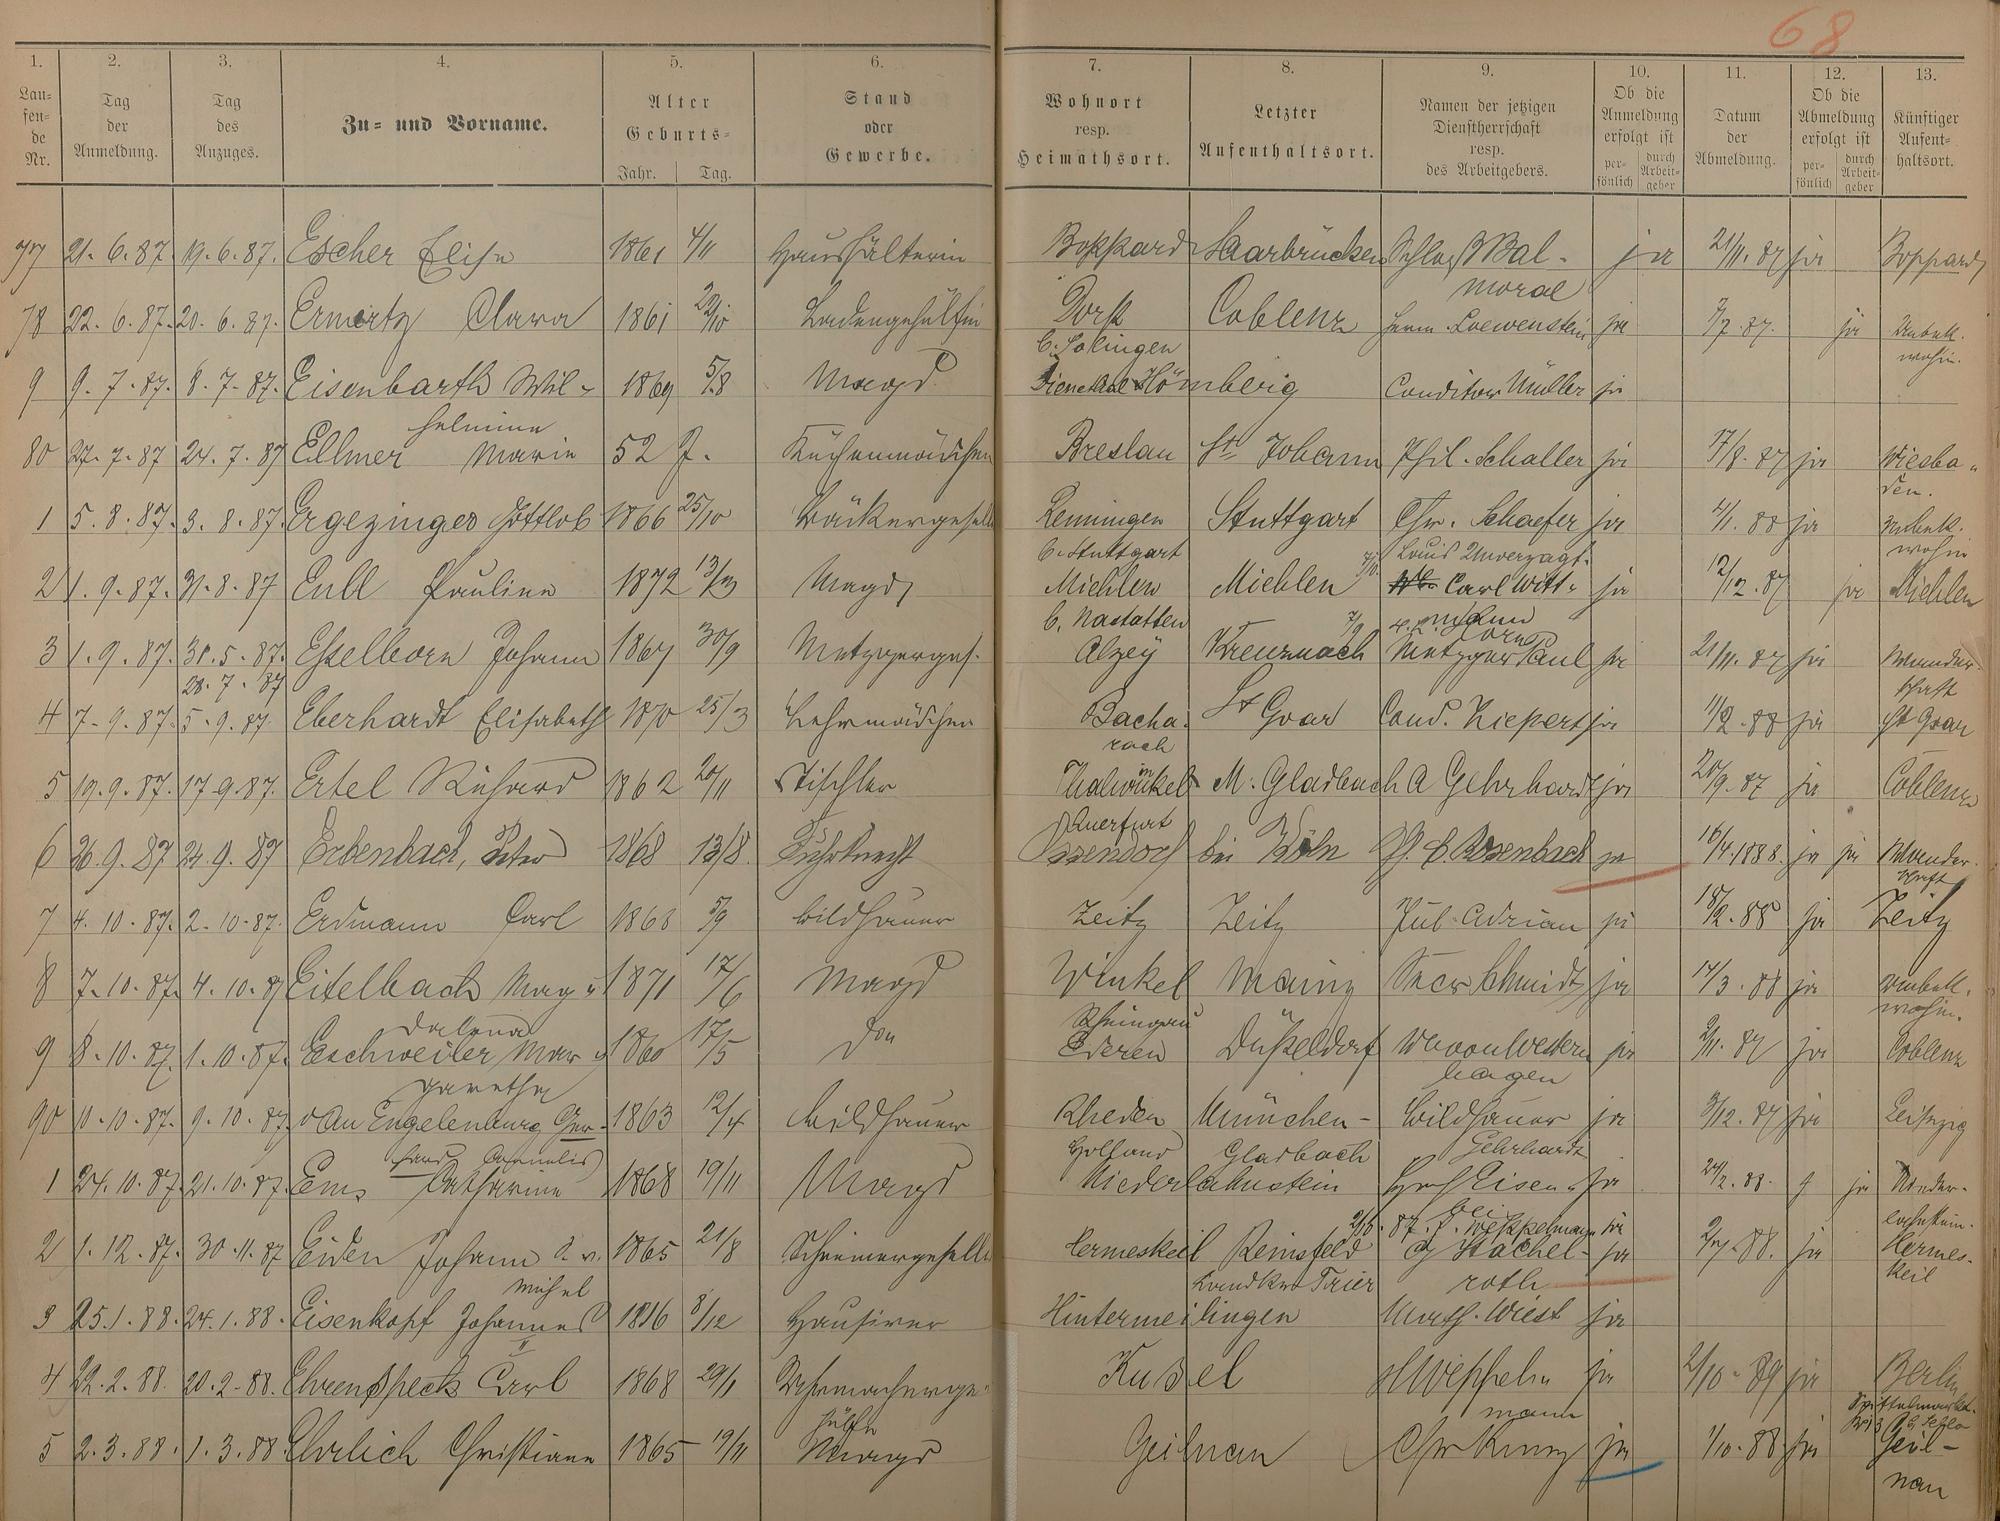 68
1. 2. 3. 4. 5. 6. 7. 8. 9. 10. 11. 12. 13.
Lau=
fen=
de
Nr.
Tag
der
Anmeldung.
Tag
des
Anzuges.
Zu= und Vorname.
Alter
Geburts=
Jahr. Tag.
Stand
oder
Gewerbe.
Wohnort
resp.
Heimathsort.
Letzter
Aufenthaltsort.
Namen der jetzigen
Dienstherrschaft
resp.
des Arbeitgebers.
Ob die
Anmeldung
erfolgt ist
per=
sönlich
durch
Arbeit=
geber
Datum
der
Abmeldung.
Ob die
Abmeldung
erfolgt ist
per=
sönlich
durch
Arbeit=
geber
Künftiger
Aufent=
haltsort.
77 21. 6. 87. 19. 6. 87. Escher Elise 1861 4/11 Haushälterin Boppard Saarbrücken Schloß Bal- ja 21/11. 87 ja Boppard
moral
78 22. 6. 87. 20. 6. 87. Ermertz Clara 1861 22/10 Ladengehülfin Coblenz Herm. Loewenstein ja 7/7. 87. ja Unbek.
wohin.
9 9. 7. 87. 8. 7. 87. Eisenbarth Wil- 1869 5/8 Magd Dienethal Hömberg Conditor Müller ja
helmine
80 27. 7. 87 24. 7. 87 Ellmer Marie 52 J. Küchenmädchen Breslau St. Johann Phil. Schaller ja 17/8. 87 ja Wiesba-
den.
1 5. 8. 87. 3. 8. 87. Ergezinger Gottlob 1866 25/10 Bäckergeselle Renningen Stuttgart Chr. Schaefer ja 4/1. 88 ja Unbek.
b. Stuttgart Louis Unverzagt. wohin
2 1. 9. 87. 31. 8. 87 Eull Pauline 1872 13/3 Magd Miehlen Miehlen Carl Witt- ja 12/12. 87 ja Miehlen
b. Nastätten
3 1. 9. 87. 31. 5. 87. Esselborn Johann 1867 30/9 Metzgerges. Alzey Kreuznach Metzger Paul ja 21/11. 87 ja Wander-
28. 7. 87 schaft
4 7. 9. 87. 5. 9. 87. Eberhardt Elisabeth 1870 25/3 Lehrmädchen Bacha- St Goar Cond. Kiepert ja 11/2. 88 ja St Goar
rach
5 19. 9. 87. 17. 9. 87. Ertel Richard 1862 20/11 Tischler Thalwinkel M. Gladbach A Gehrhardt ja 20/9. 87 ja Coblenz
Querfurt
6 26. 9. 87 24. 9. 87 Erbenbach, Peter 1868 13/8. Fuhrknecht Ossendorf bei Köln Ph. C. Rosenbach ja 16/4. 1888. ja ja Wander-
schaft
7 4. 10. 87. 2. 10. 87. Erdmann Carl 1863 5/9 Bildhauer Zeitz Zeitz Jul. Adrian ja 18/2. 88 ja Zeitz
8 7. 10. 87. 4. 10. 87 Eitelbach Mag- 1871 17/6 Magd Winkel Mainz Secr Schmidt ja 14/3. 88 ja Unbek.
dalena Rheingau wohin.
9 8. 10. 87. 1. 10. 87. Eschweiler Mar- 1860 17/5 do Ederen Düsseldorf W von Western ja 2/11. 87 ja Coblenz
garetha hagen
90 10. 10. 87. 9. 10. 87. van Engelenburg Ger- 1863 12/4 Bildhauer Rheden München- Bildhauer ja 3/12. 87 ja Leipzig
hard Cornelis Holland Gladbach Gehrhardt
1 24. 10. 87. 21. 10. 87. Ems Catharine 1868 19/11 Magd Niederlahnstein Hof Eisen- ja 24/2. 88. ja Nieder-
lahnstein.
2 1. 12. 87. 30. 11. 87 Eiden Johann 1865 21/8 Schreinergeselle Hermeskeil Reinsfeld Hachel- ja ja Hermes-
Michel Landkrs Trier roth keil
3 25. 1. 88. 24. 1. 88. Eisenkopf Johannes 1816 8/12 Hausirer Hintermeilingen Math. Wiest ja
II
4 22. 2. 88. 20. 2. 88. Ehrenspeck Carl 1868 29/1 Uhrmacherge- Kusel H Weppel- ja 2/10. 89 ja Berlin
hülfe mann
5 2. 3. 88. 1. 3. 88 Ehrlich Christiane 1865 19/11 Magd Geilnau Chr Kunz ja 1/10. 88 ja Geil-
nau